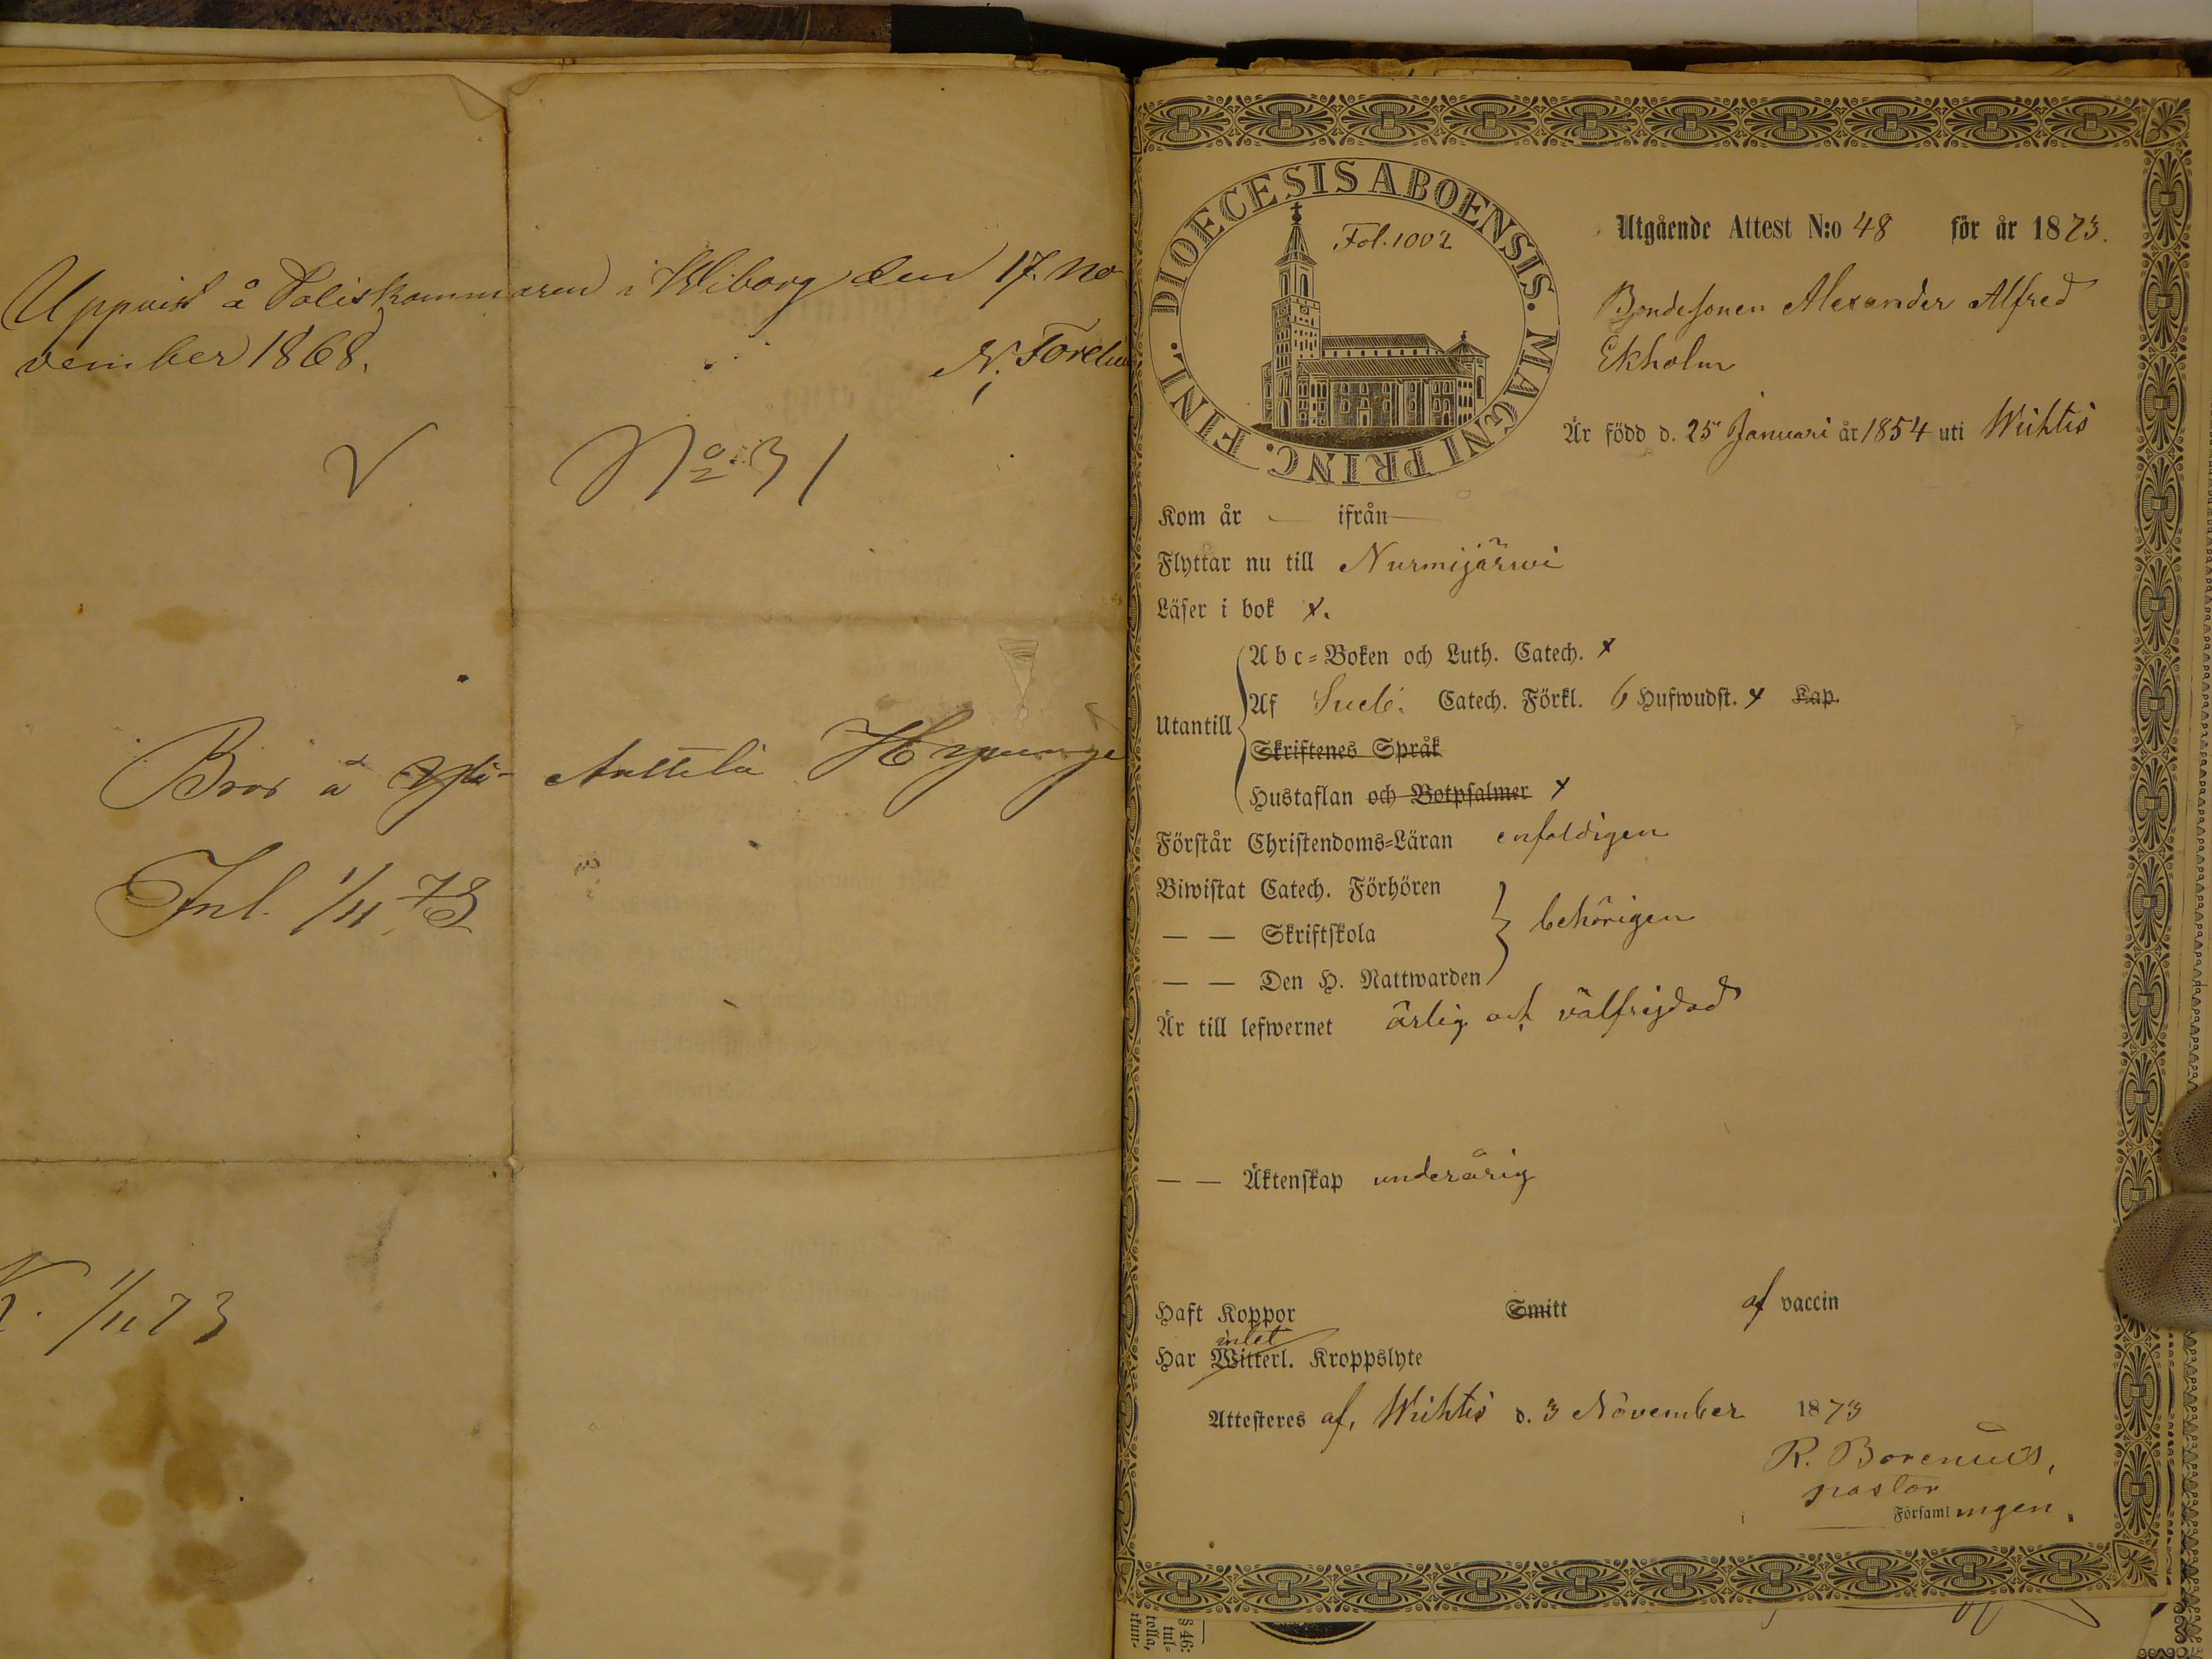 Uppvist å Poliskammaren i Wiborg den 17. No
vember 1868.
N.
V
No 31
Bror å Yli- Anttila Hyvinge
Inl. 1/11 73
K. 1/11 73
DIOECESIS ABOENSIS. MAGNI PRINC. FINL.
Fol. 1002
Utgående Attest N:o 48 för år 1873.
Bondesonen Alexander Alfred
Ekholm
Är född d. 25 Januari år 1854 uti Wichtis
Kom år — ifrån —
Flyttar nu till Nurmijärwi
Läser i bok x.
Utantill
Abc=Boken och Luth. Catech. x
Af Sveb. Catech. Förkl. 6 Hufwudst. x Kap.
Skriftenes Språk
Hustaflan och Botpsalmer x
Förstår Christendoms=Läran enfaldigen
Biwistat Catech. Förhören
— — Skriftskola
behörigen
— — Den H. Nattwarden
Är till lefwernet ärlig och välfrejdad
— — Äktenskap underårig
Haft Koppor Smitt af vaccin
intet
Har Witterl. Kroppslyte
Attesteres af, Wichtis d. 3 November 1873
R. Borenius,
pastor
i Församlingen.
§ 46:
tul=
tolla,